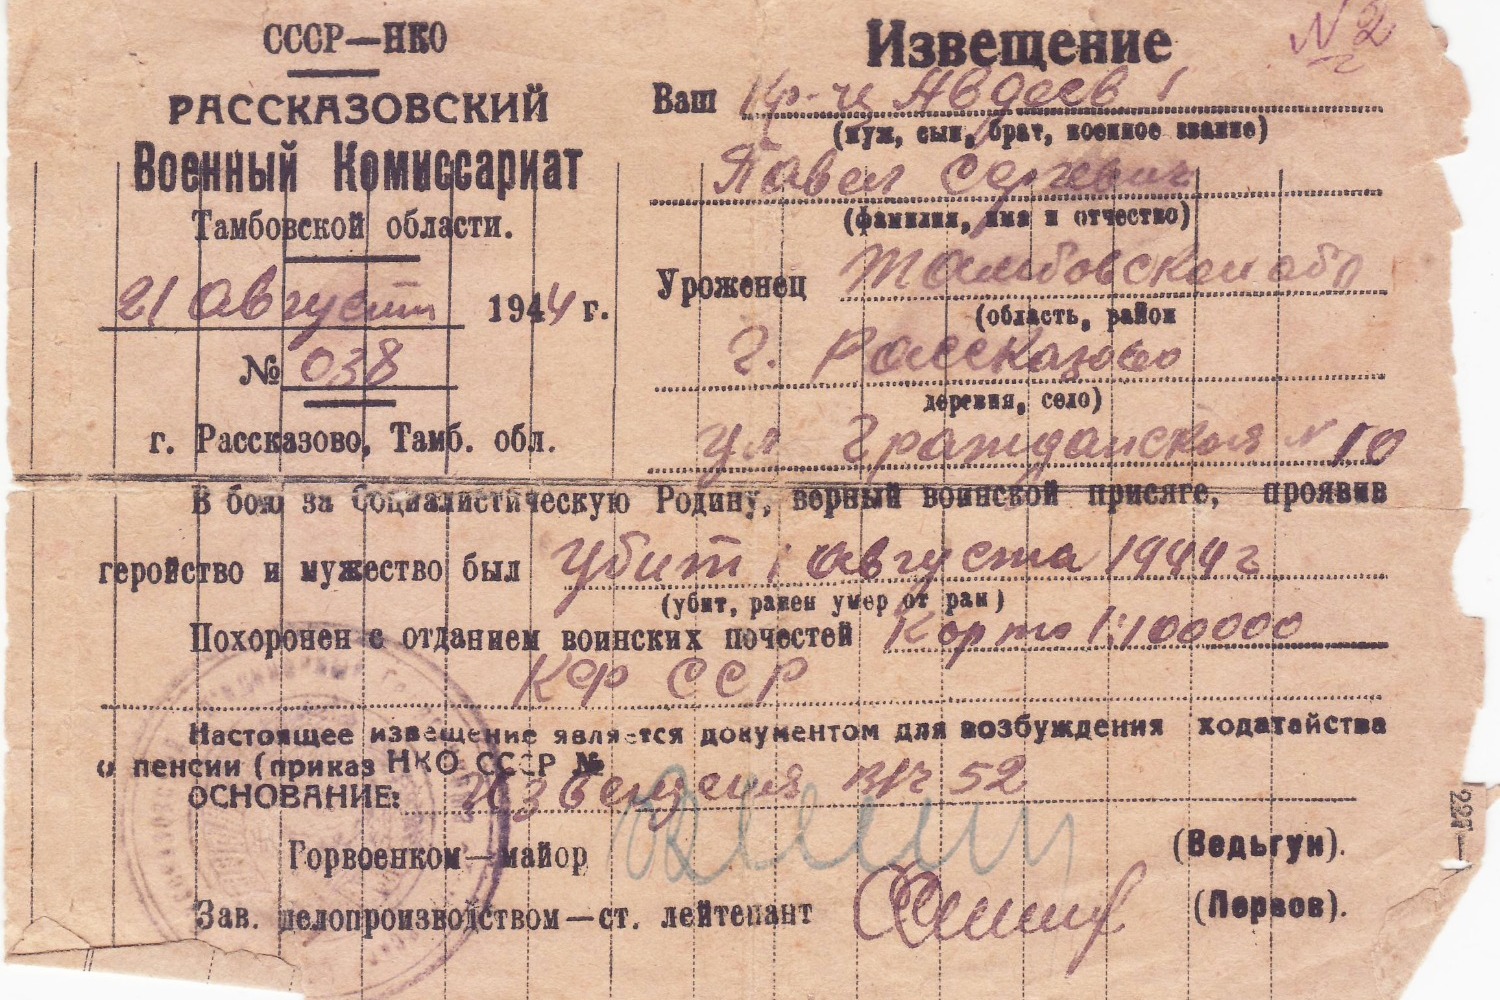 СССР—НКО
РАССКАЗОВСКИЙ
Военный Комиссариат
Тамбовской области.
21 августа 1944 г.
№ 038
г. Рассказово, Тамб. обл.
Извещение
№ 2
Ваш кр-ц Авдеев
(муж, сын, брат, военное звание)
Павел Сергевич
(фамилия, имя и отчество)
Уроженец Тамбовской обл
(область, район
г. Рассказово
деревня, село)
ул Гражданская № 10
В бою за Социалистическую Родину, верный воинской присяге, проявив
геройство и мужество был убит 1 августа 1944 г
(убит, ранен умер от ран)
Похоронен с отданием воинских почестей Карта 1:100000
КФ ССР
Настоящее извещение является документом для возбуждения ходатайства
о пенсии (приказ НКО СССР №
ОСНОВАНИЕ: Извещения в/ч 52
Горвоенком—майор (Ведьгун).
Зав. делопроизводством—ст. лейтенант (Первов).